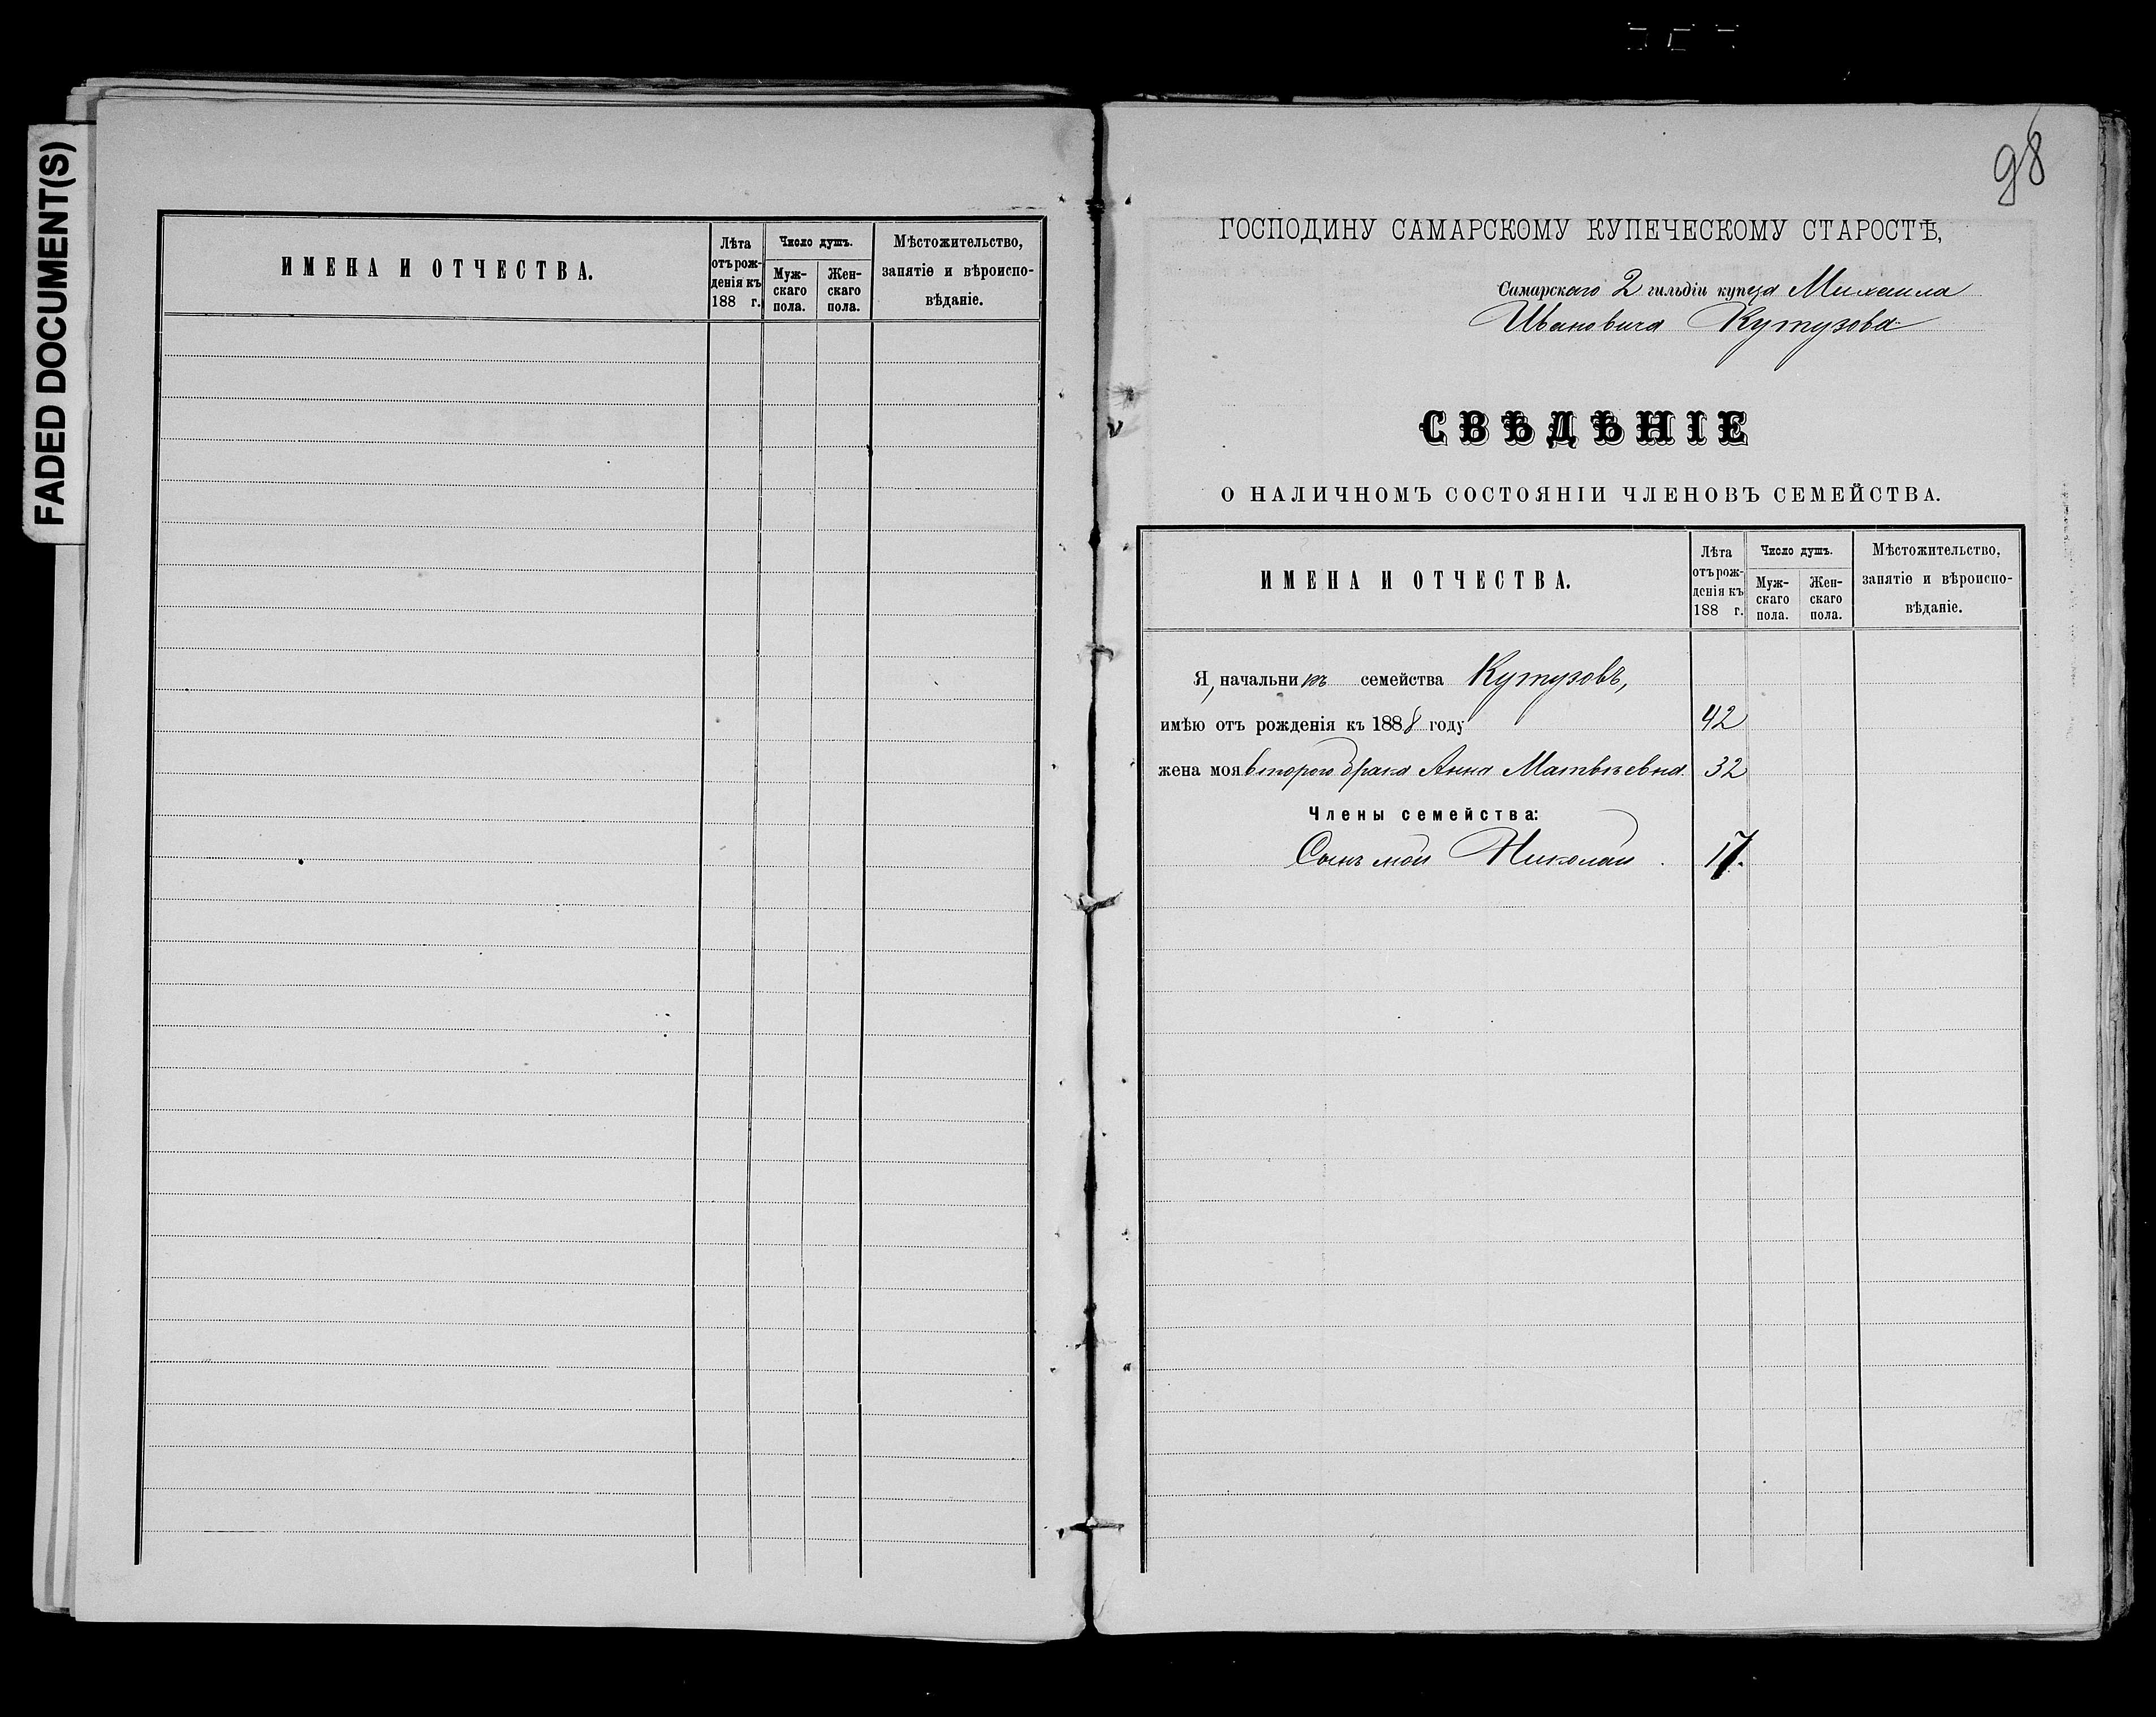 FADED DOCUMENT(S)
ИМЕНА И ОТЧЕСТВА.
Лѣта отъ рожденія къ 188 г.
Число душъ.
Мужскаго пола.
Женскаго пола.
Мѣстожительство, занятіе и вѣроисповѣданіе.
98
ГОСПОДИНУ САМАРСКОМУ КУПЕЧЕСКОМУ СТАРОСТѢ,
Самарскаго 2 гильдіи купца Михаила
Ивановича Кутузова
СВѢДѢНІЕ
О НАЛИЧНОМЪ СОСТОЯНІИ ЧЛЕНОВЪ СЕМЕЙСТВА.
ИМЕНА И ОТЧЕСТВА.
Лѣта отъ рожденія къ 188 г.
Число душъ.
Мужскаго пола.
Женскаго пола.
Мѣстожительство, занятіе и вѣроисповѣданіе.
Я, начальникъ семейства Кутузовъ,
имѣю отъ рожденія къ 1888 году 42
жена моя втораго брака Анна Матвѣевна 32
Члены семейства:
Сынъ мой Николай 17.